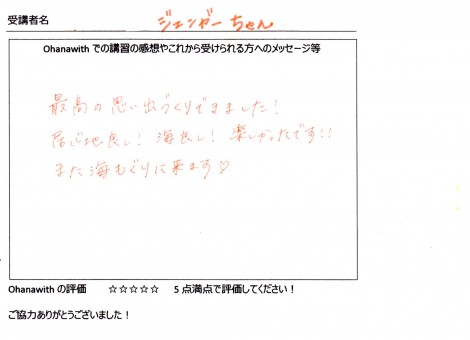 受講者名 ジェンガーちゃん
Ohanawith での講習の感想やこれから受けられる方へのメッセージ等
最高の思い出づくりできました！
居心地良し！ 海良し！ 楽しかったです！！
また海もぐりに来ます♡
Ohanawith の評価 ☆☆☆☆☆ 5 点満点で評価してください！
ご協力ありがとうございました！